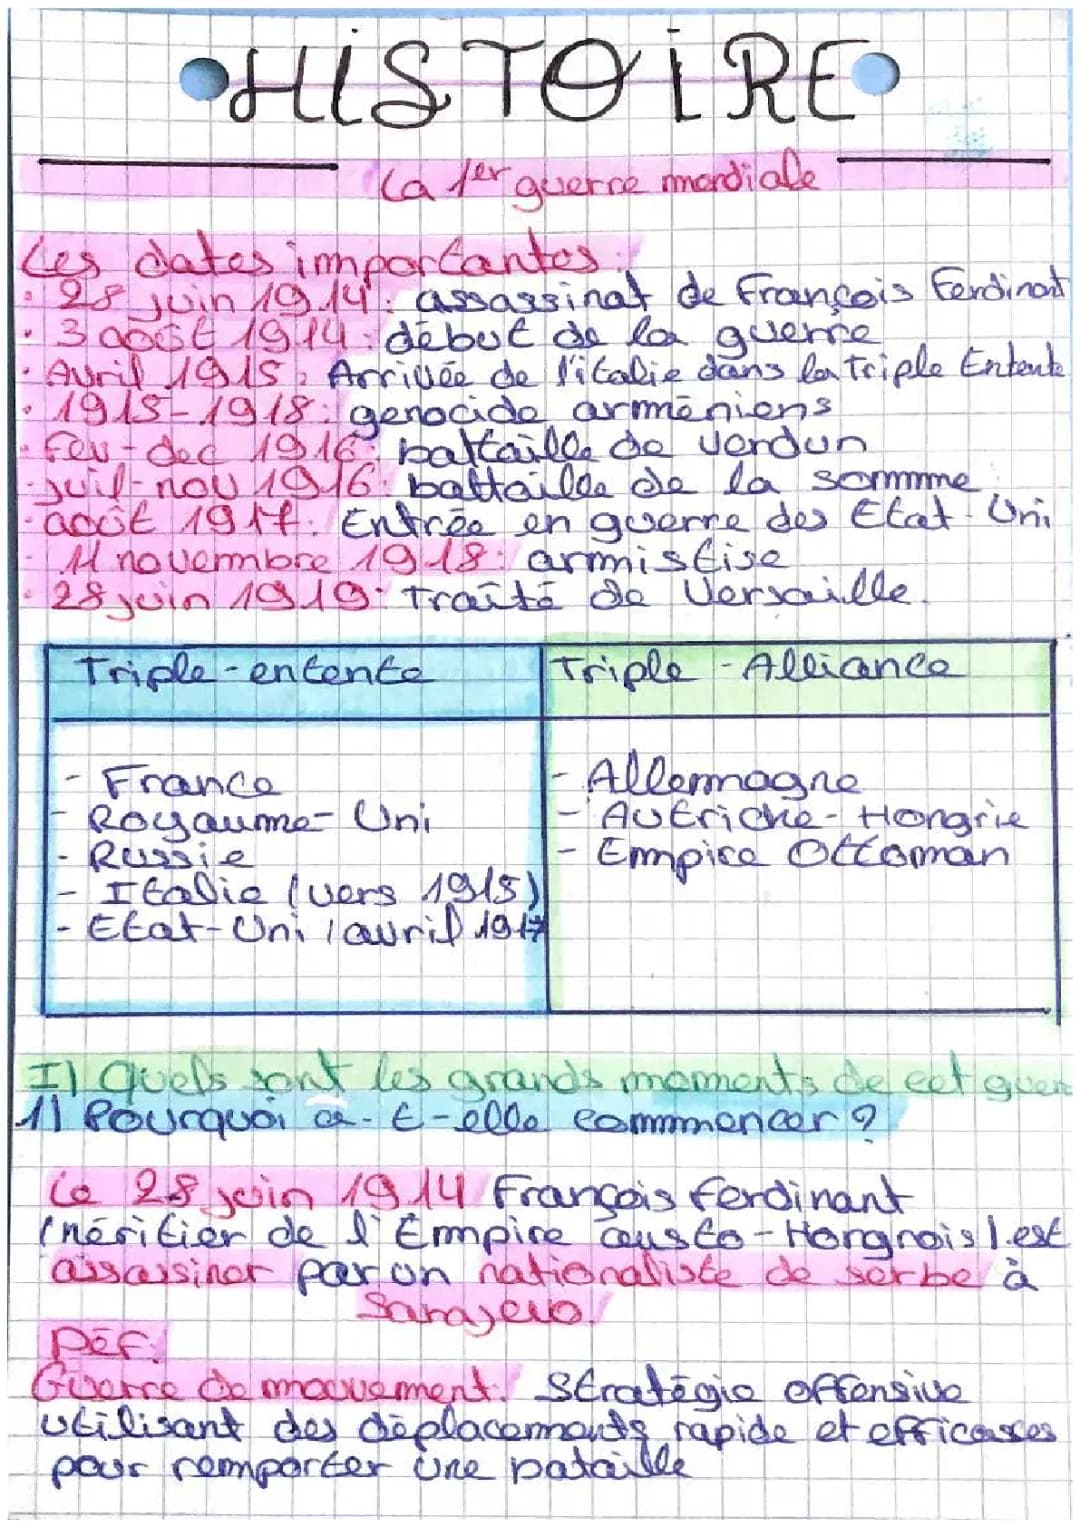 HISTOIRE
La 1er guerre mondiale
Les dates importantes :
• 28 juin 1914 : assassinat de François Ferdinant
• 3 août 1914 : début de la guerre
• Avril 1915 : Arrivée de l'italie dans la Triple Entente
• 1915-1918 : genocide arméniens
- Fev-dec 1916 : battaille de Verdun
- juil-nov 1916 : battaille de la somme
- août 1917 : Entrée en guerre des Etat-Uni
- 11 novembre 1918 : armistise
• 28 juin 1919 : Traité de Versaille.
Triple-entente Triple-Alliance
- France - Allemagne
- Royaume-Uni - Autriche-Hongrie
- Russie - Empire Ottoman
- Italie (vers 1915)
- Etat-Uni (avril 1917
I) Quels sont les grands moments de cet guer
1) Pourquoi a-t-elle commencer ?
Le 28 juin 1914 François Ferdinant
(héritier de l'Empire austo-Hongrois) est
assassiner par un nationaliste de serbe à
Sarajevo.
Déf:
Guerre de mouvement: Stratégie offensive
utilisant des déplacements rapide et efficases
pour remporter une bataille